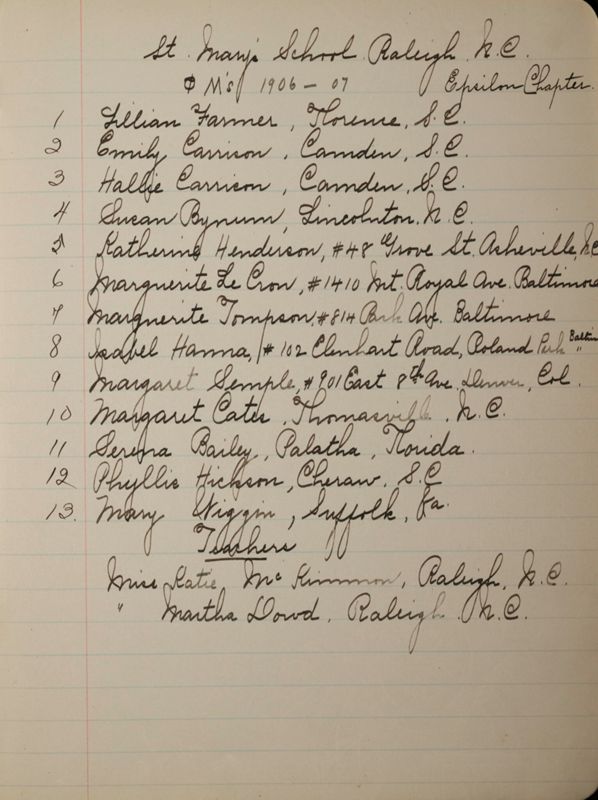 St. Mary's School Raleigh N.C.
Φ M's 1906 – 07 Epsilon Chapter.
1 Lillian Farmer, Florence, S.C.
2 Emily Carrison, Camden, S.C.
3 Hallie Carrison, Camden, S.C.
4 Susan Bynum, Lincolnton, N.C.
5 Katherine Henderson, #48 Grove St. Asheville, N.C.
6 Marguerite Le Cron, #1410 Mt. Royal Ave. Baltimore
7 Marguerite Tompson, #814 Park Ave. Baltimore
8 Isabel Hanna, #102 Elmhart Road, Roland Park Baltim "
9 Margaret Semple, #901 East 8th Ave. Denver, Col.
10 Margaret Cates, Thomasville, N.C.
11 Serena Bailey, Palatha, Florida.
12 Phyllis Hickson, Cheraw, S.C
13. Mary Wiggin, Suffolk, Va.
Teachers
Miss Katie McKimmon, Raleigh, N.C.
" Martha Dowd, Raleigh N.C.